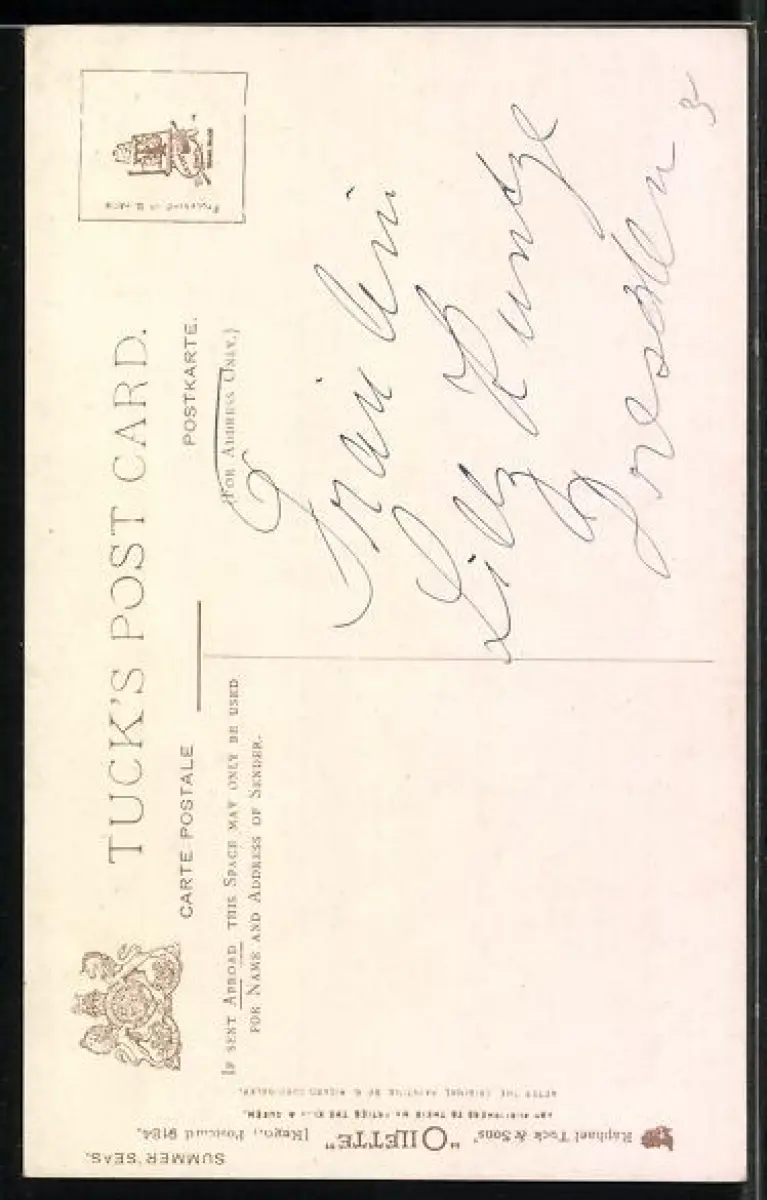 TUCK'S POST CARD.
CARTE POSTALE
POSTKARTE.
IF SENT ABROAD THIS SPACE MAY ONLY BE USED
FOR NAME AND ADDRESS OF SENDER.
(FOR ADDRESS ONLY.)
Fräulein
Lilly Kuntze
Dresden
3
SUMMER SEAS.
Raphael Tuck & Sons' "OILETTE" [Regd.], Postcard 9184.
ART PUBLISHERS TO THEIR MAJESTIES THE KING & QUEEN.
AFTER THE ORIGINAL PAINTING BY